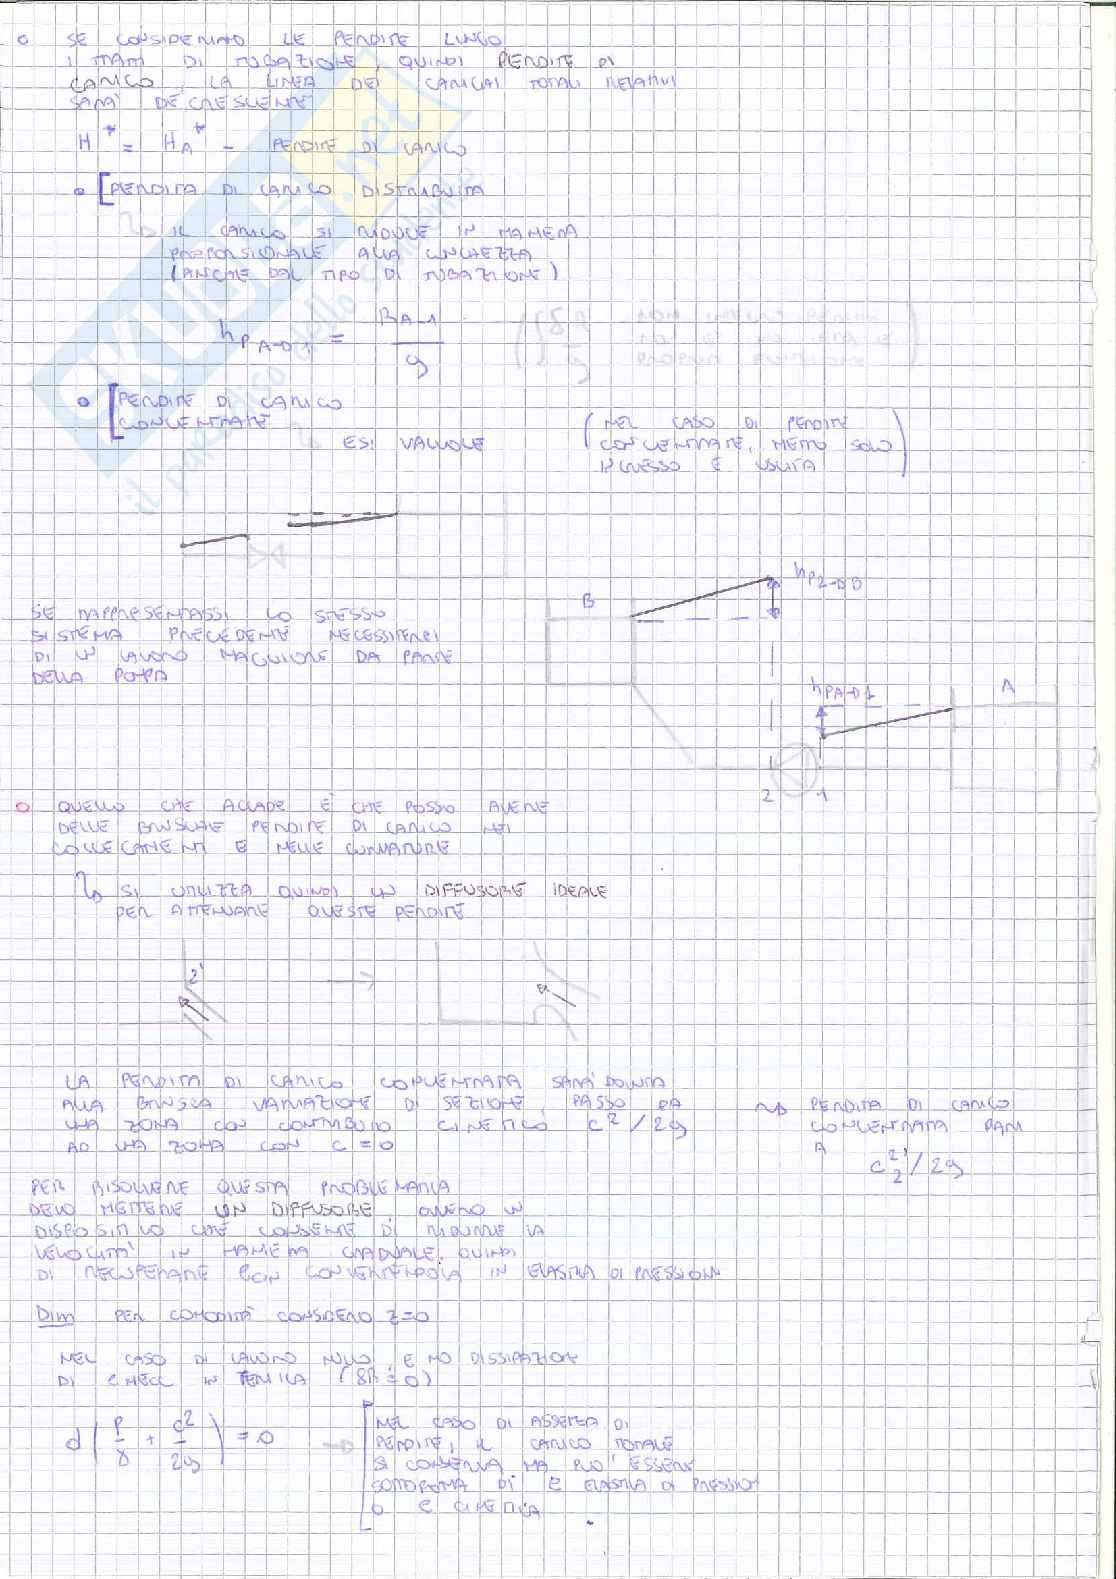 SE CONSIDERIAMO LE PERDITE LUNGO
I TRATTI DI TUBAZIONE, QUINDI PERDITE DI
CARICO, LA LINEA DEI CARICHI TOTALI RELATIVI
SARA' DECRESCENTE
H* = H_A* - PERDITE DI CARICO
PERDITA DI CARICO DISTRIBUITA
IL CARICO SI RIDUCE IN MANIERA
PROPORSIONALE ALLA LUNGHEZZA
(ANCHE DAL TIPO DI TUBAZIONE)
h_P A→1 = R_A-1 / g
PERDITE DI CARICO
CONCENTRATE
ES: VALVOLE
(NEL CASO DI PERDITE
CONCENTRATE, METTO SOLO
INGRESSO E USCITA)
h_P2→B
B
SE RAPPRESENTASSI LO STESSO
SISTEMA PRECEDENTE NECESSITEREI
DI UN LAVORO MAGGIORE DA PARTE
DELLA POMPA
h_PA→1
A
2 1
QUELLO CHE ACCADE E' CHE POSSO AVERE
DELLE BRUSCHE PERDITE DI CARICO NEI
COLLEGAMENTI E NELLE CURVATURE
SI UTILIZZA QUINDI UN DIFFUSORE IDEALE
PER ATTENUARE QUESTE PERDITE
2'
LA PERDITA DI CARICO CONCENTRATA SARA' DOVUTA
ALLA BRUSCA VARIAZIONE DI SEZIONE, PASSO DA
UNA ZONA CON CONTRIBUTO CINETICO c²/2g
AD UNA ZONA CON C=0
PERDITA DI CARICO
CONCENTRATA PARI
A
c₂'²/2g
PER RISOLVERE QUESTA PROBLEMATICA
DEVO METTERE UN DIFFUSORE, OVVERO UN
DISPOSITIVO CHE CONSENTE DI RIDURRE LA
VELOCITA' IN MANIERA GRADUALE, QUINDI
DI RECUPERARE E CIN CONVERTENDOLA IN ELASTICA DI PRESSIONE
Dim PER COMODITA' CONSIDERO z=0
NEL CASO DI LAVORO NULLO, E NO DISSIPAZIONE
DI E MECC IN TERMICA (δR=0)
d(P/γ + c²/2g) = 0
NEL CASO DI ASSENZA DI
PERDITE, IL CARICO TOTALE
SI CONSERVA MA PUO' ESSERE
SOTTOFORMA DI E ELASTICA DI PRESSIONE
O E CINETICA